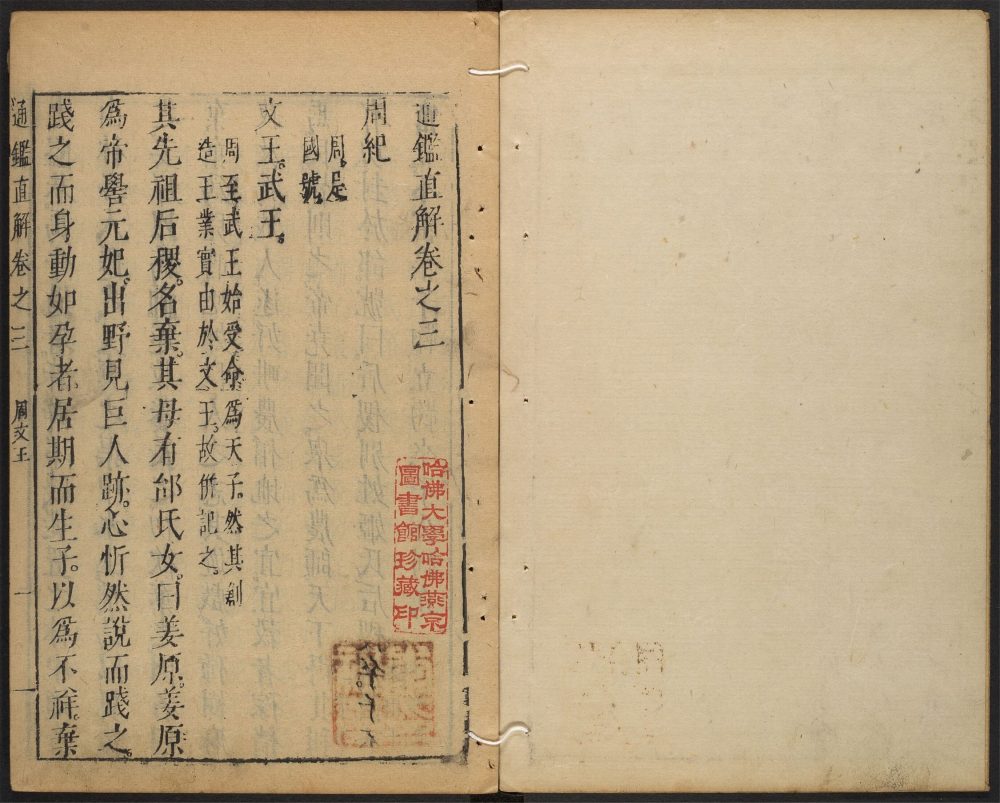 通鑑直解卷之三
周紀
周。是
國號。
文王。武王。
周至武王始受命爲天子。然其創
造王業實由於文王。故併記之。
其先祖后稷。名棄。其母有邰氏女。曰姜原。姜原
爲帝嚳元妃。出野見巨人跡。心忻然說而踐之。
踐之而身動如孕者。居期而生子。以爲不祥。棄
通鑑直解卷之三 周文王 一
哈佛大學哈佛燕京
圖書館珍藏印